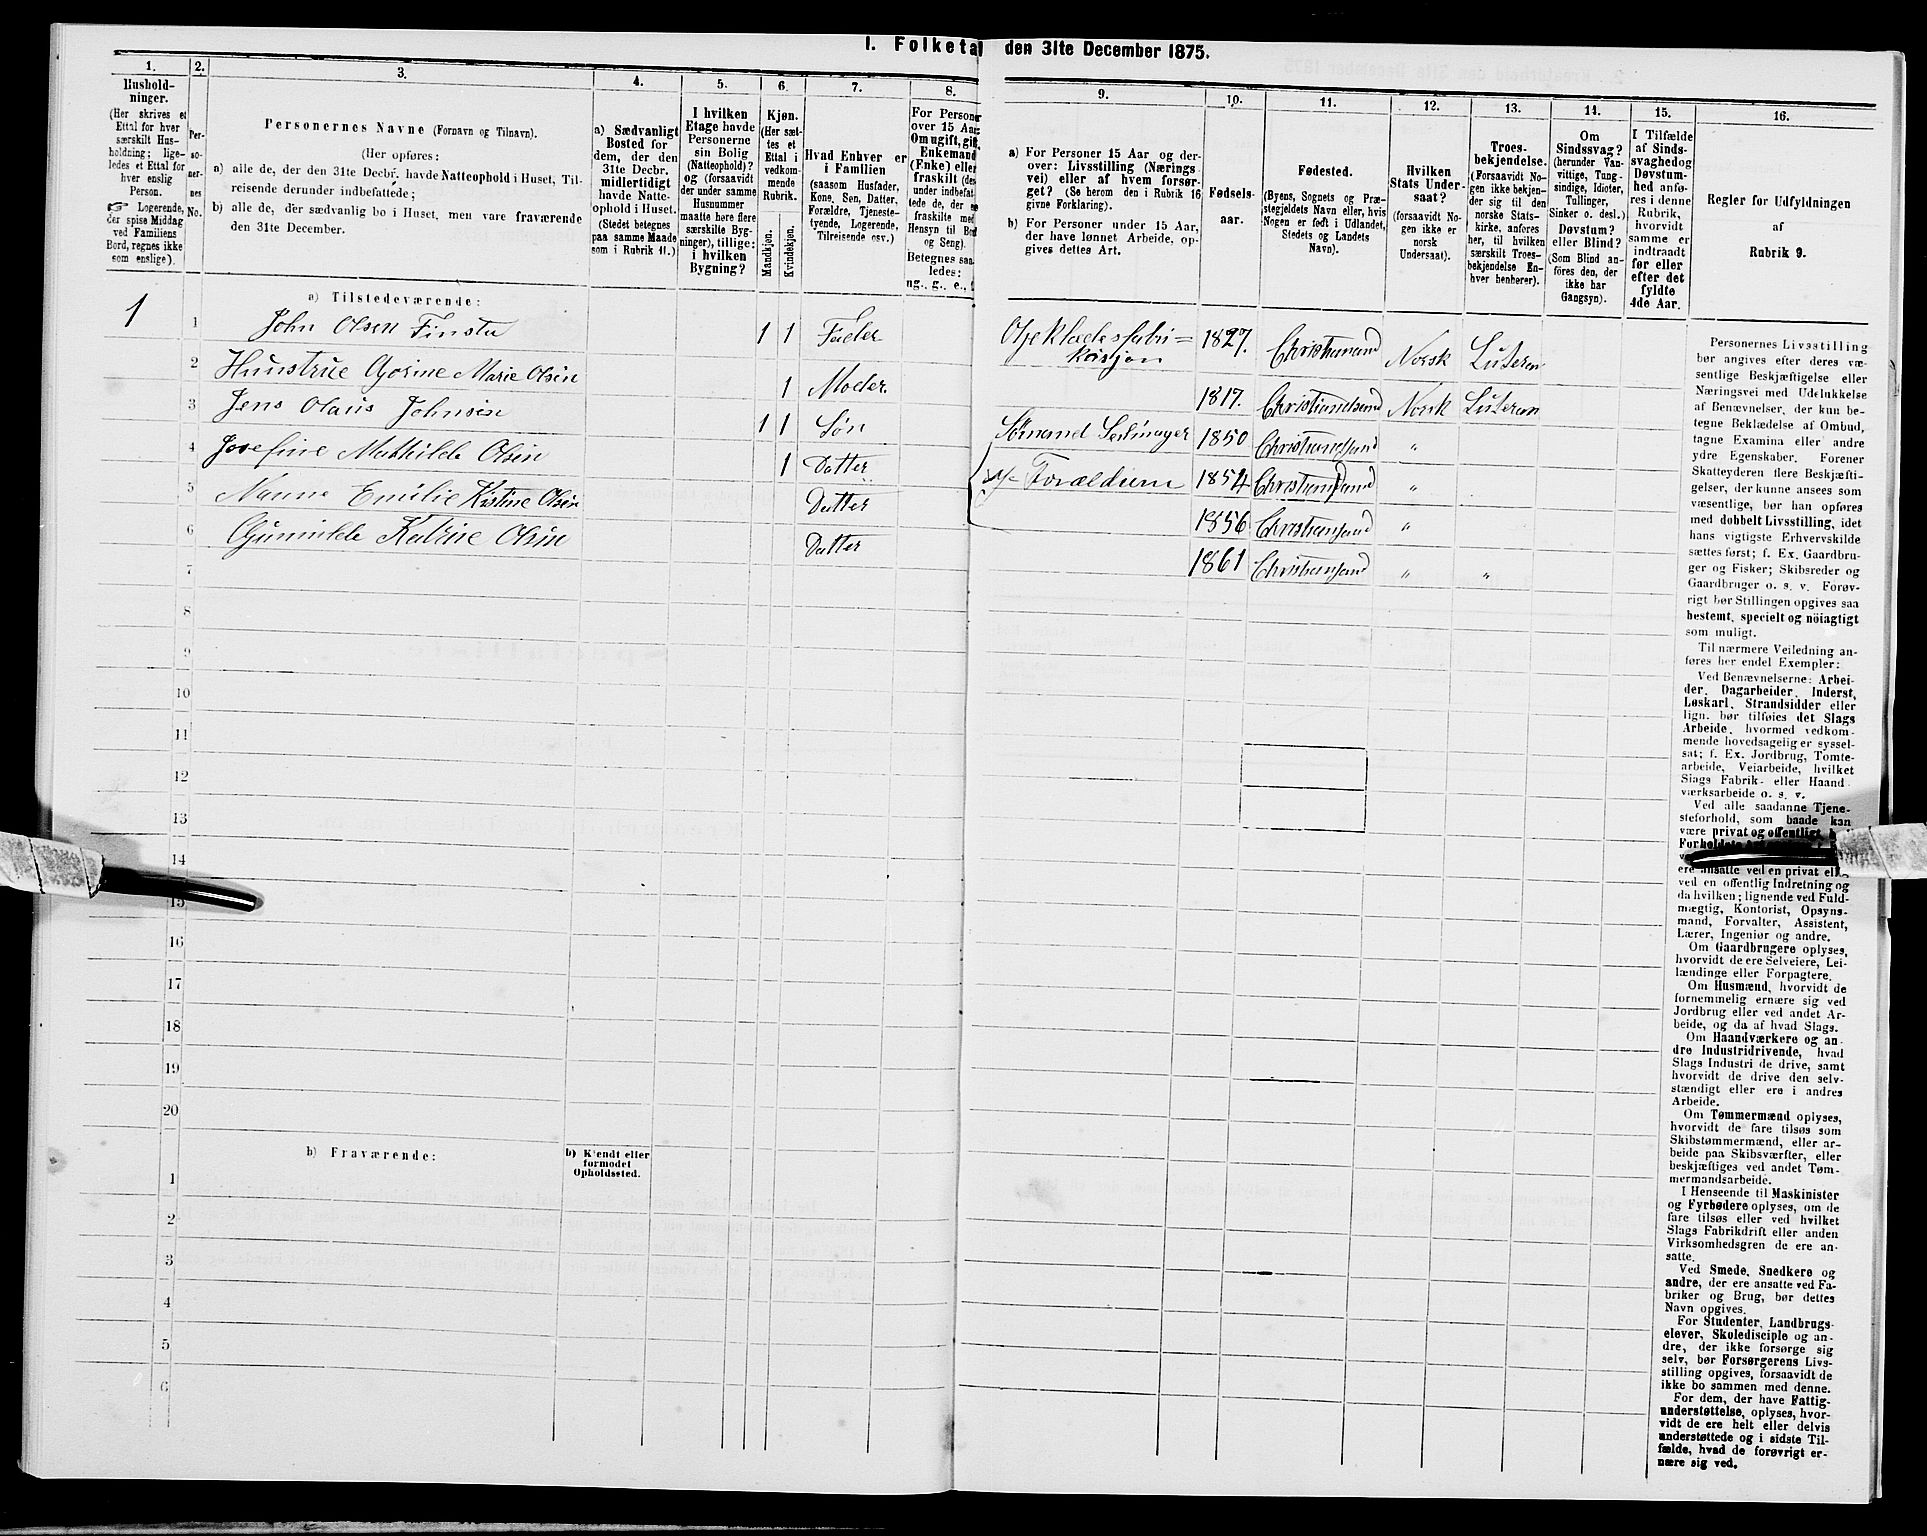 I. Folketal den 31te December 1875.
1.
Hushold-
ninger.
(Her skrives et
Ettal for hver
særskilt Hus-
holdning; lige-
ledes et Ettal for
hver enslig
Person.
☞ Logerende,
der spise Middag
ved Familiens
Bord, regnes ikke
som enslige).
2.
Per-
so-
ner-
nes
No.
3.
Personernes Navne (Fornavn og Tilnavn).
(Her opføres:
a) alle de, der den 31te Decbr. havde Natteophold i Huset, Til-
reisende derunder indbefattede;
b) alle de, der sædvanlig bo i Huset, men vare fraværende
den 31te December.
4.
a) Sædvanligt
Bosted for
dem, der den
31te Decbr.
midlertidigt
havde Natte-
ophold i Huset.
(Stedet betegnes
paa samme Maade
som i Rubrik 11.)
5.
I hvilken
Etage havde
Personerne
sin Bolig
(Natteophold)?
og (forsaavidt
der under samme
Husnummer
maatte høre flere
særskilte Byg-
ninger), tillige:
i hvilken
Bygning?
6.
Kjøn.
(Her sæt-
tes et
Ettal i
vedkom-
mende
Rubrik.
Mandkjøn.
Kvindekjøn.
7.
Hvad Enhver er
i Familien
(saasom Husfader,
Kone, Søn, Datter,
Forældre, Tjeneste-
tyende, Logerende,
Tilreisende osv.)
8.
For Personer
over 15 Aar:
Om ugift, gift,
Enkemand
(Enke) eller
fraskilt (de
under indbefat-
tede de, der
fraskilte med
Hensyn til Bord
og Seng).
Betegnes saa-
ledes:
ug., g., e., f.
9.
a) For Personer 15 Aar og der-
over: Livsstilling (Nærings-
vei) eller af hvem forsør-
get? (Se herom den i Rubrik 16
givne Forklaring).
b) For Personer under 15 Aar,
der have lønnet Arbeide, op-
gives dettes Art.
10.
Fødsels-
aar.
11.
Fødested.
(Byens, Sognets og Præ-
stegjeldets Navn eller, hvis
Nogen er født i Udlandet,
Stedets og Landets
Navn).
12.
Hvilken
Stats Under-
saat?
(forsaavidt No-
gen ikke er
norsk
Undersaat).
13.
Troes-
bekjendelse.
(Forsaavidt No-
gen ikke bekjen-
der sig til den
norske Stats-
kirke, anføres
her, til hvilken
særskilt Troes-
bekjendelse En-
hver henhører).
14.
Om
Sindssvag?
(herunder Van-
vittige, Tung-
sindige, Idioter,
Tullinger,
Sinker o. desl.)
Døvstum?
eller Blind?
(Som Blind an-
føres den, der
ikke har
Gangsyn).
15.
I Tilfælde
af Sinds-
svaghed og
Døvstum-
hed anfø-
res i denne
Rubrik,
hvorvidt
samme er
indtraadt
før eller
efter det
fyldte
4de Aar.
16.
Regler for Udfyldningen
af
Rubrik 9.
a) Tilstedeværende:
1 1 John Olsen Finstu 1 1 Fader Oljeklædesfabri= 1827. Christiansand Norsk Luteran
kasjon
2 Hunstrue Gjorine Marie Olsen 1 Moder. 1817. Christiandsand Norsk Luteran
3 Jens Olaus Johnsen 1 1 Søn Sømand Seilmager 1850 Christiansand "
4 Josefine Mathilde Olsen 1 Datter Foræeldrene 1854 Christiansand "
5 Nanna Emilie Kistine Olsen Datter 1856 Christiansand "
6 Gunnilde Katrine Olsen Datter 1861 Christiansand " "
7
8
9
10
11
12
13
14
15
16
17
18
19
20
b) Fraværende:
b) Kjendt eller
formodet
Opholdssted.
1
2
3
4
5
6
Personernes Livsstilling
bør angives efter deres væ-
sentlige Beskjæftigelse eller
Næringsvei med Udelukkelse
af Benævnelser, der kun be-
tegne Beklædelse af Ombud,
tagne Examina eller andre
ydre Egenskaber. Forener
Skatteyderen flere Beskjæfti-
gelser, der kunne ansees som
væsentlige, bør han opføres
med dobbelt Livsstilling, idet
hans vigtigste Erhvervskilde
sættes først; f. Ex. Gaardbru-
ger og Fisker; Skibsreder og
Gaardbruger o. s. v. Forøv-
rigt bør Stillingen opgives saa
bestemt, specielt og nöiagtigt
som muligt.
Til nærmere Veiledning an-
føres her endel Exempler:
Ved Benævnelserne: Arbei-
der, Dagarbeider, Inderst,
Løskarl, Strandsidder eller
lign. bør tilføies det Slags
Arbeide, hvormed vedkom-
mende hovedsagelig er syssel-
sat; f. Ex. Jordbrug, Tomte-
arbeide, Veiarbeide, hvilket
Slags Fabrik- eller Haand
værksarbeide o. s. v.
Ved alle saadanne Tjene-
steforhold, som baade kan
være privat og offentligt,
Forholdets
ere ansatte ved en privat
ved en offentlig Indretning og
da hvilken; lignende ved Fuld-
mægtig, Kontorist, Opsyns-
mand, Forvalter, Assistent,
Lærer, Ingeniør og andre.
Om Gaardbrugere oplyses,
hvorvidt de ere Selveiere, Lei-
lændinge eller Forpagtere.
Om Husmænd, hvorvidt de
fornemmelig ernære sig ved
Jordbrug eller ved andet Ar-
beide, og da af hvad Slags.
Om Haandværkere og an-
dre Industridrivende, hvad
Slags Industri de drive, samt
hvorvidt de drive den selv-
stændigt eller ere i andres
Arbeide.
Om Tømmermænd oplyses,
hvorvidt de fare tilsøs som
Skibstømmermænd, eller ar-
beide paa Skibsværfter, eller
beskjæftiges ved andet Tøm-
mermandsarbeide.
I Henseende til Maskinister
og Fyrbødere oplyses, om de
fare tilsøs eller ved hvilket
Slags Fabrikdrift eller anden
Virksomhedsgren de ere an-
satte.
Ved Smede, Snedkere og
andre, der ere ansatte ved Fa-
briker og Brug, bør dettes
Navn opgives.
For Studenter, Landbrugs-
elever, Skoledisciple og an-
dre, der ikke forsørge sig
selv, bør Forsørgerens Livs-
stilling opgives, forsaavidt de
ikke bo sammen med denne.
For dem, der have Fattig-
understøttelse, oplyses, hvor-
vidt de ere helt eller delvis
understøttede og i sidste Til-
fælde, hvad de forøvrigt er-
nære sig ved.